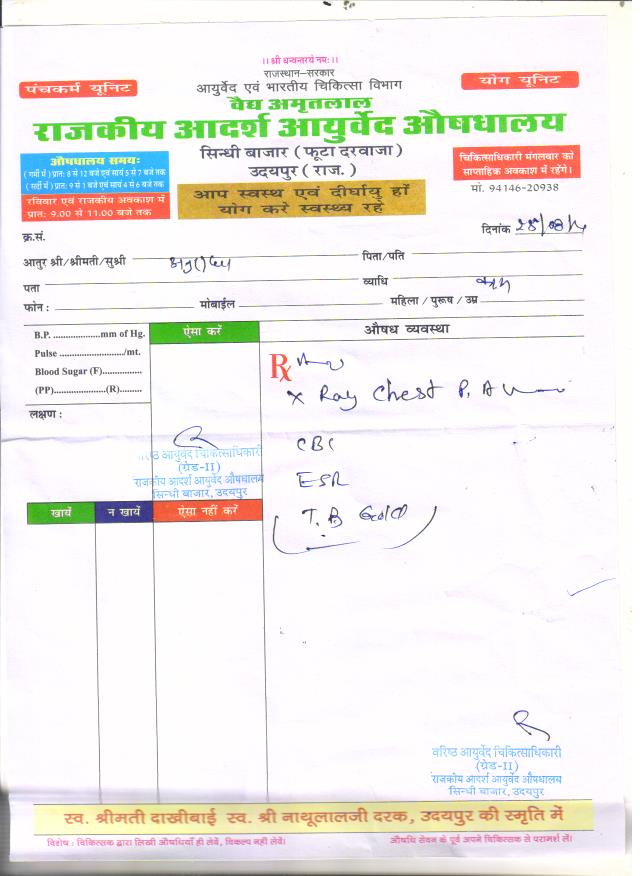 ।। श्री धन्वन्तरये नमः ।।
राजस्थान–सरकार
पंचकर्म यूनिट
आयुर्वेद एवं भारतीय चिकित्सा विभाग
योग यूनिट
वैद्य अमृतलाल
राजकीय आदर्श आयुर्वेद औषधालय
सिन्धी बाजार ( फूटा दरवाजा )
उदयपुर ( राज. )
औषधालय समयः
( गर्मी में ) प्रातः 8 से 12 बजे एवं सायं 5 से 7 बजे तक
( सर्दी में ) प्रातः 9 से 1 बजे एवं सायं 4 से 6 बजे तक
रविवार एवं राजकीय अवकाश में
प्रातः 9.00 से 11.00 बजे तक
आप स्वस्थ एवं दीर्घायु हों
योग करें स्वस्थ्य रहें
चिकित्साधिकारी मंगलवार को
साप्ताहिक अवकाश में रहेंगे।
मो. 94146-20938
दिनांक
क्र.सं.
आतुर श्री/श्रीमती/सुश्री
पिता/पति
पता
व्याधि
फोन :
मोबाईल
महिला / पुरूष / उम्र
B.P. ...................mm of Hg.
Pulse ........................../mt.
Blood Sugar (F)................
(PP).....................(R).........
लक्षण :
ऐसा करें
औषध व्यवस्था
Rx
X Ray Chest P. A
CBC
ESR
T. B Gold
वरिष्ठ आयुर्वेद चिकित्साधिकारी
(ग्रेड-II)
राजकीय आदर्श आयुर्वेद औषधालय
सिन्धी बाजार, उदयपुर
खायें
न खायें
ऐसा नहीं करें
वरिष्ठ आयुर्वेद चिकित्साधिकारी
(ग्रेड-II)
राजकीय आदर्श आयुर्वेद औषधालय
सिन्धी बाजार, उदयपुर
स्व. श्रीमती दाखीबाई स्व. श्री नाथूलालजी दरक, उदयपुर की स्मृति में
विशेष : चिकित्सक द्वारा लिखी औषधियाँ ही लेवें, विकल्प नहीं लेवें।
औषधि सेवन के पूर्व अपने चिकित्सक से परामर्श लें।